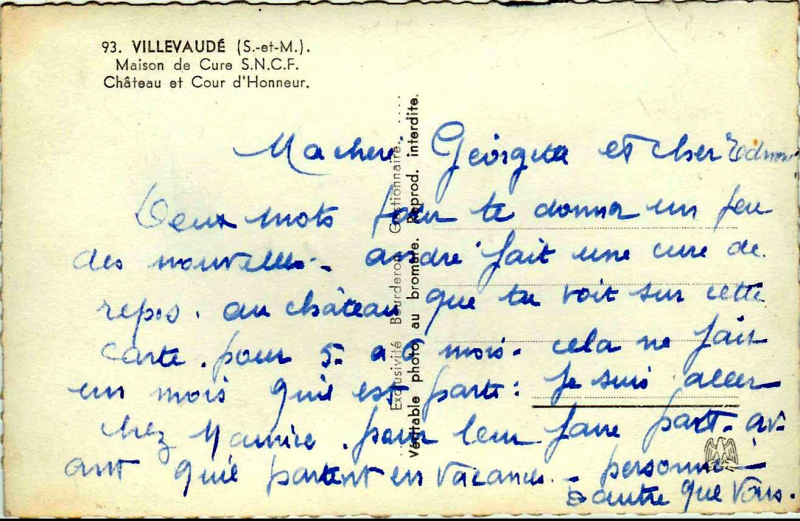 93. VILLEVAUDÉ (S.-et-M.).
Maison de Cure S.N.C.F.
Château et Cour d'Honneur.
Exclusivité Bourderon Gestionnaire.
Véritable photo au bromure. Reprod. interdite.
Ma chère Georgette et cher Edmond
Deux mots pour te donner un peu
des nouvelles. andre fait une cure de
repos. au château que tu voit sur cette
carte. pour 5 a 6 mois. cela ne fait
un mois qu'il est parti : Je suis aller
chez Maurice. pour leur faire part. av-
ant qu'il partent en vacances. - personne
autre que vous.